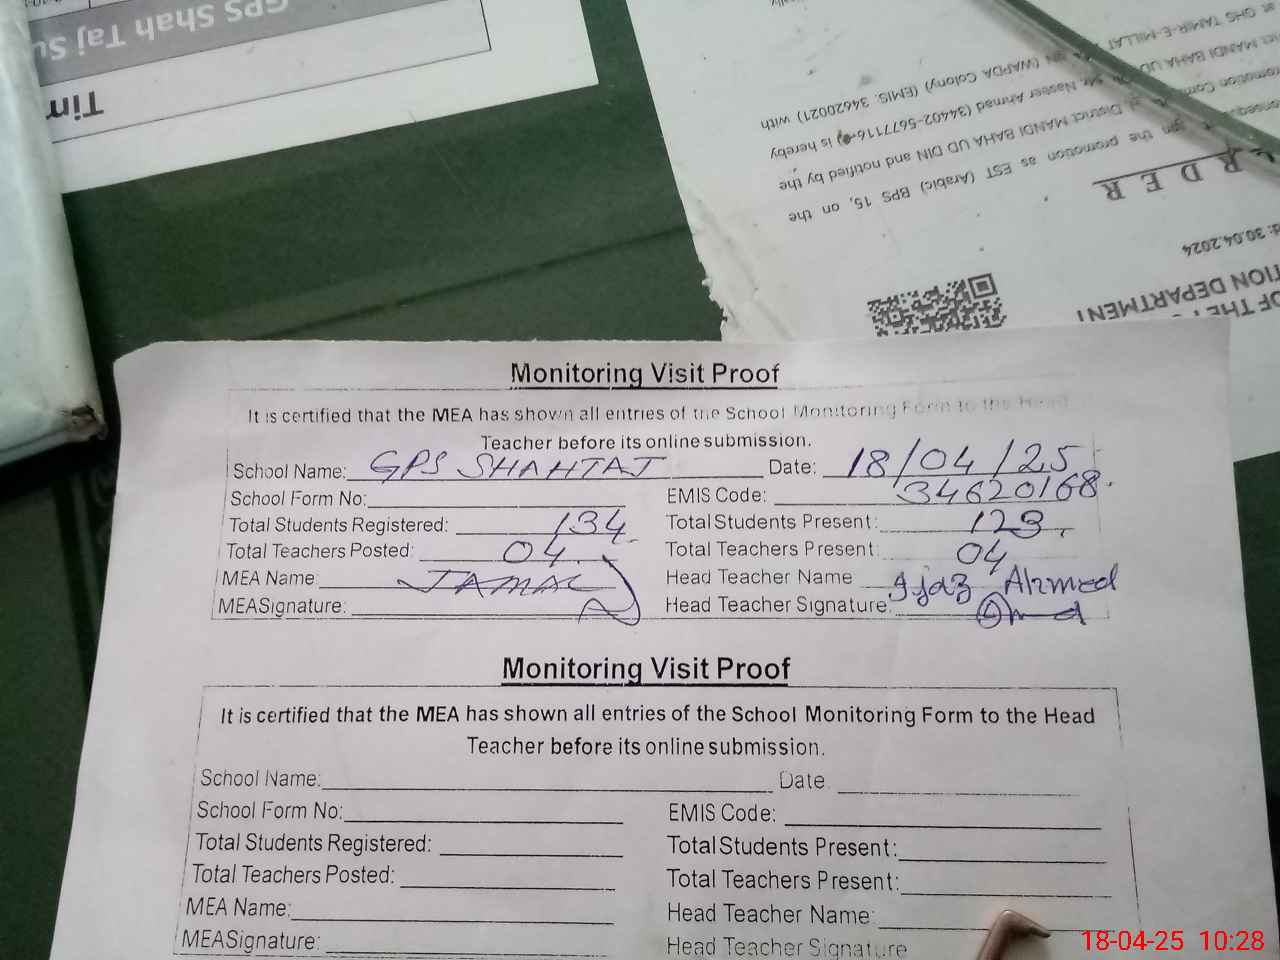 GPS Shah Taj Su
Tim
at GHS TAMIR-E-MILLAT
(WAPDA Colony) (EMIS: 34620021) with
Mr. Naseer Ahmad (34402-5677116-) is hereby
District MANDI BAHA UD DIN and notified by the
the promotion as EST (Arabic) BPS 15, on the
R D E R
30.04.2024
OF THE
TION DEPARTMENT
Monitoring Visit Proof
It is certified that the MEA has shown all entries of the School Monitoring Form to the Head
Teacher before its online submission.
School Name: GPS SHAHTAJ Date: 18/04/25
School Form No: EMIS Code: 34620168.
Total Students Registered: 134 Total Students Present: 123
Total Teachers Posted: 04 Total Teachers Present: 04
MEA Name: JAMAL Head Teacher Name Ijaz Ahmed
MEASignature: Head Teacher Signature:
Monitoring Visit Proof
It is certified that the MEA has shown all entries of the School Monitoring Form to the Head
Teacher before its online submission.
School Name: Date
School Form No: EMIS Code:
Total Students Registered: Total Students Present:
Total Teachers Posted: Total Teachers Present:
MEA Name: Head Teacher Name:
MEASignature: Head Teacher Signature
18-04-25 10:28